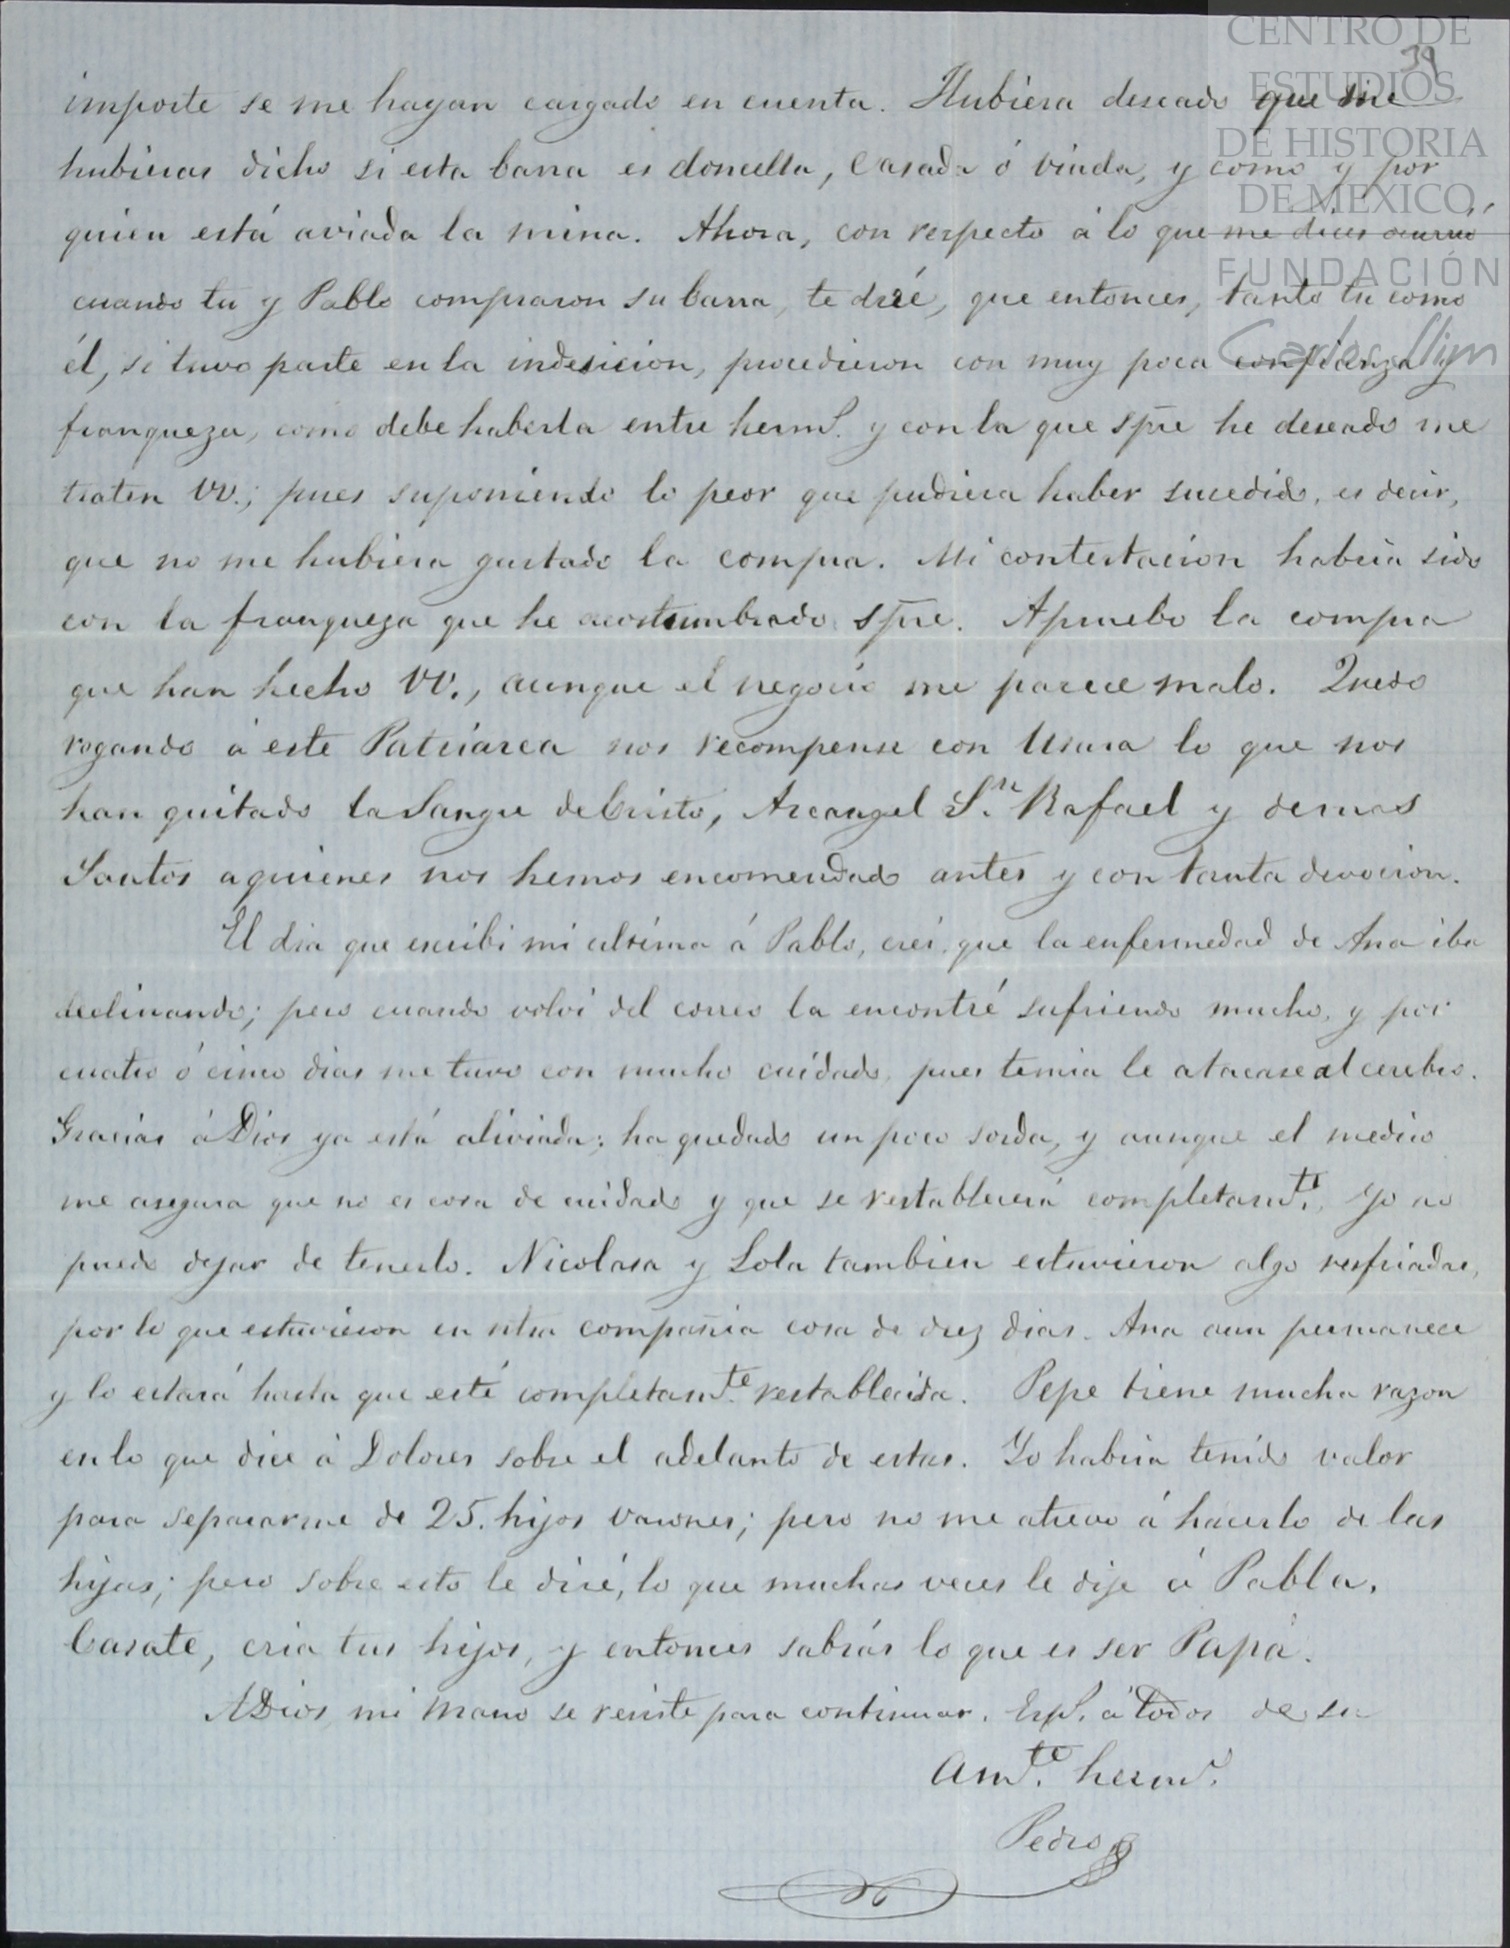 CENTRO DE
ESTUDIOS
DE HISTORIA
DE MEXICO
FUNDACIÓN
Carlos Slim
39
importe se me hayan cargado en cuenta. Hubiera deseado que me
hubieras dicho si esta barra es doncella, casada ó viuda, y como y por
quien está aviada la mina. Ahora, con respecto á lo que me dices ocurrió
cuando tu y Pablo compraron su barra, te diré, que entonces, tanto tu como
él, si tuvo parte en la indesicion, procedieron con muy poca confianza y
franqueza, como debe haberla entre herms. y con la que spre he deseado me
traten VV.; pues suponiendo lo peor que pudiera haber sucedido, es decir,
que no me hubiera gustado la compra. Mi contestacion habria sido
con la franqueza que he acostumbrado spre. Apruebo la compra
que han hecho VV., aunque el negocio me parece malo. Quedo
rogando á este Patriarca nos recompense con Usura lo que nos
han quitado la Sangre de Cristo, Arcangel Sn. Rafael y demas
Santos a quienes nos hemos encomendado antes y con tanta devocion.
El dia que escribi mi ultima á Pablo, crei, que la enfermedad de Ana iba
declinando; pero cuando volvi del correo la encontré sufriendo mucho, y por
cuatro ó cinco dias me tuvo con mucho cuidado, pues temia le atacase al cerebro.
Gracias á Dios ya está aliviada; ha quedado un poco sorda, y aunque el medico
me asegura que no es cosa de cuidado y que se restablecerá completamte. yo no
puedo dejar de tenerlo. Nicolasa y Lola tambien estuvieron algo resfriadas,
por lo que estuvieron en ntra compañia cosa de diez dias. Ana aun permanece
y lo estará hasta que esté completamte. restablecida. Pepe tiene mucha razon
en lo que dice á Dolores sobre el adelanto de estas. Yo habria tenido valor
para separarme de 25. hijos varones; pero no me atrevo á hacerlo de las
hijas; pero sobre esto le diré, lo que muchas veces le dije á Pabla.
Casate, cria tus hijos, y entonces sabrás lo que es ser Papá.
ADios, mi mano se resiste para continuar. Esps. á todos de su
Amte. hermo.
Pedro